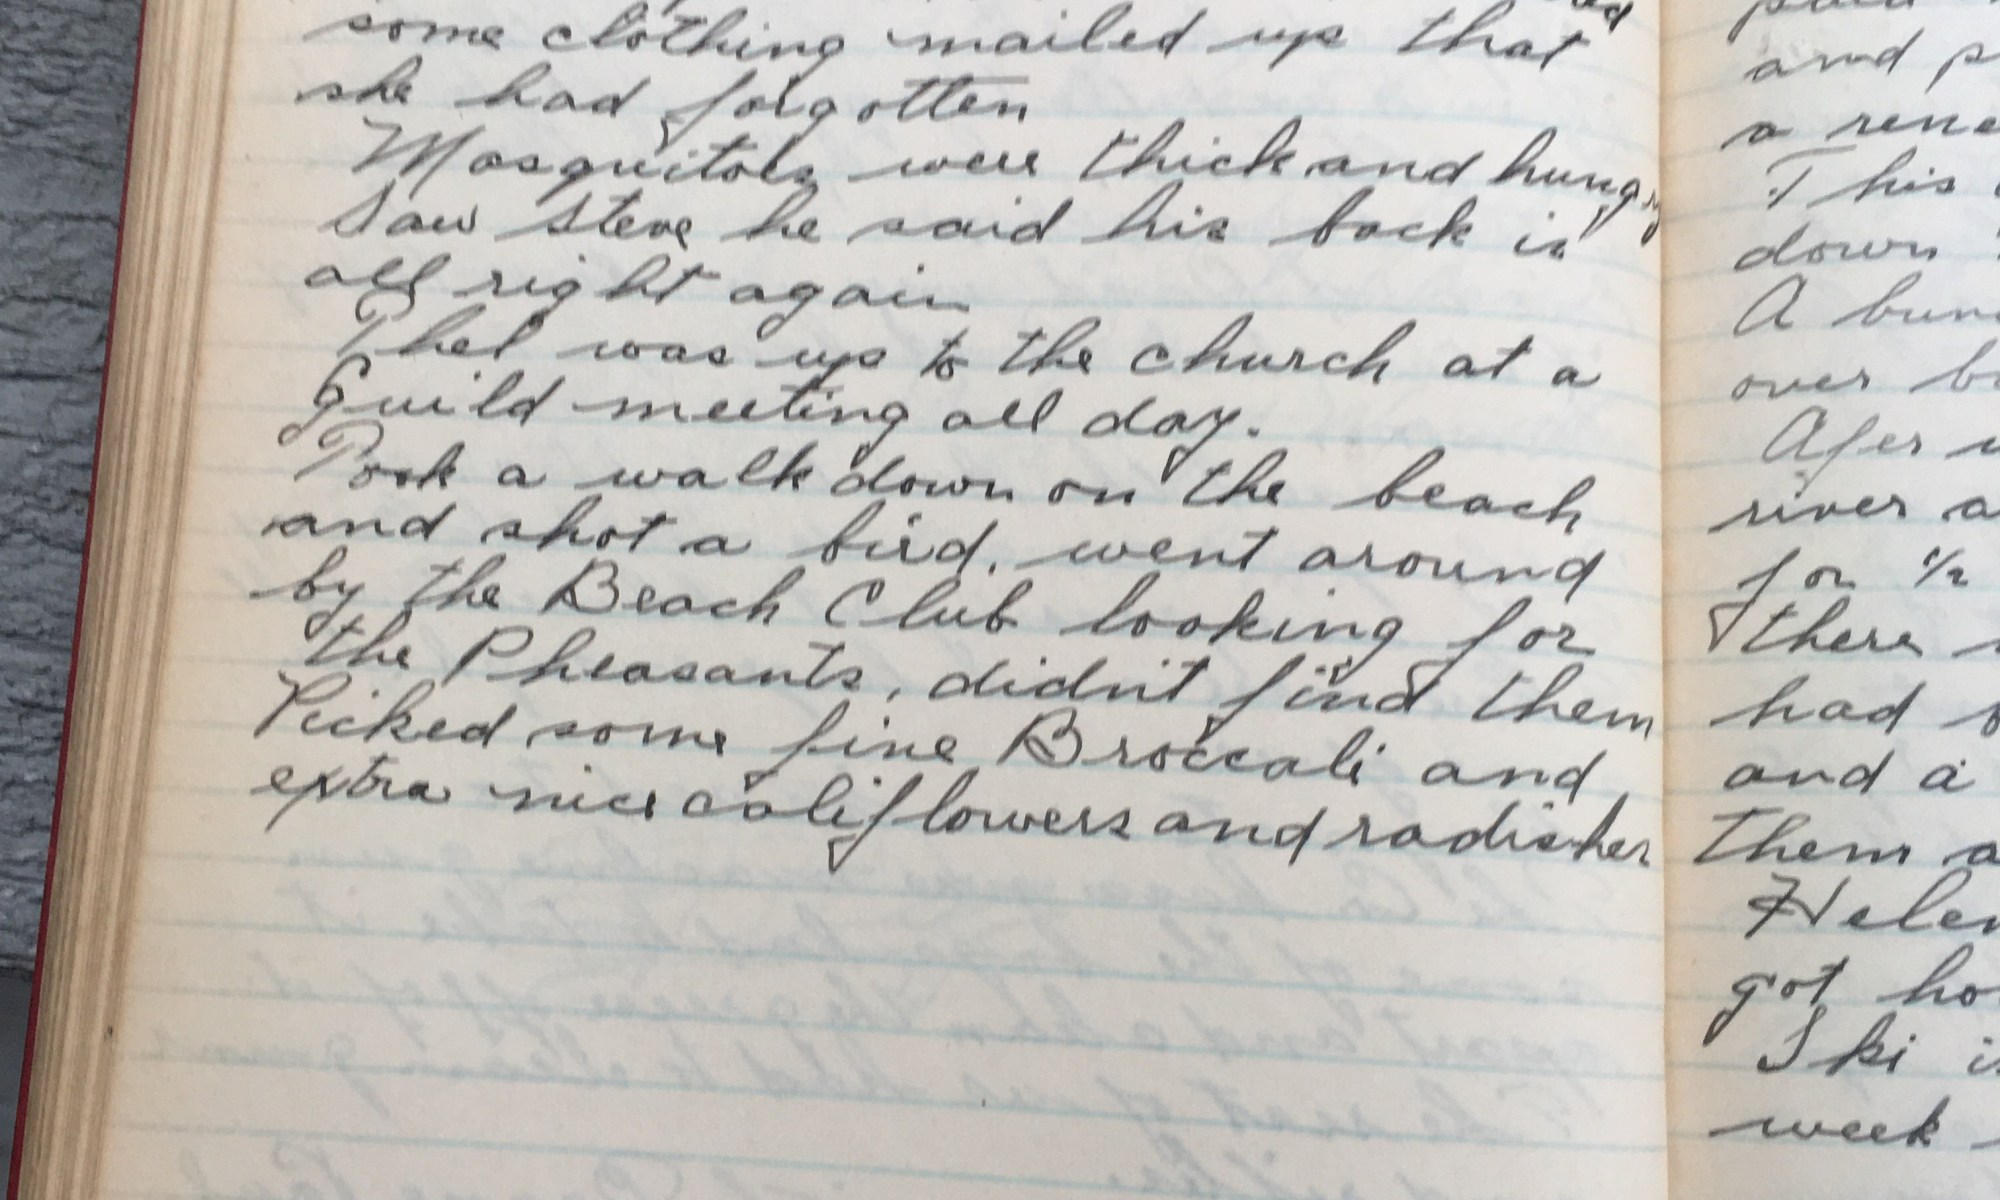 some clothing mailed up that
she had forgotten
Mosquitoes were thick and hungry
Saw Steve he said his back is
all right again
Thel was up to the church at a
Guild meeting all day.
Took a walk down on the beach
and shot a bird, went around
by the Beach Club looking for
the Pheasants, didn't find them
Picked some fine Broccali and
extra nice califlowers and radishes
and p
a rene
This
down
A bun
over
Afer
river a
for 1/2
there
had
and a
them a
Helen
got ho
Ski is
week